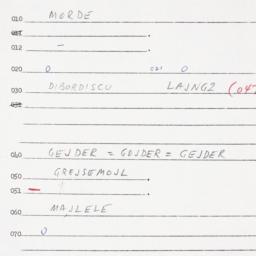 010 MORDE
011
012 -
020 0 021 0
030 DIBORDISCU LAJNGZ (047
031
040 GEJDER = GOJDER = GEJDER
050 GREJSEMOJL
051 -
060 MAJLELE
070 0